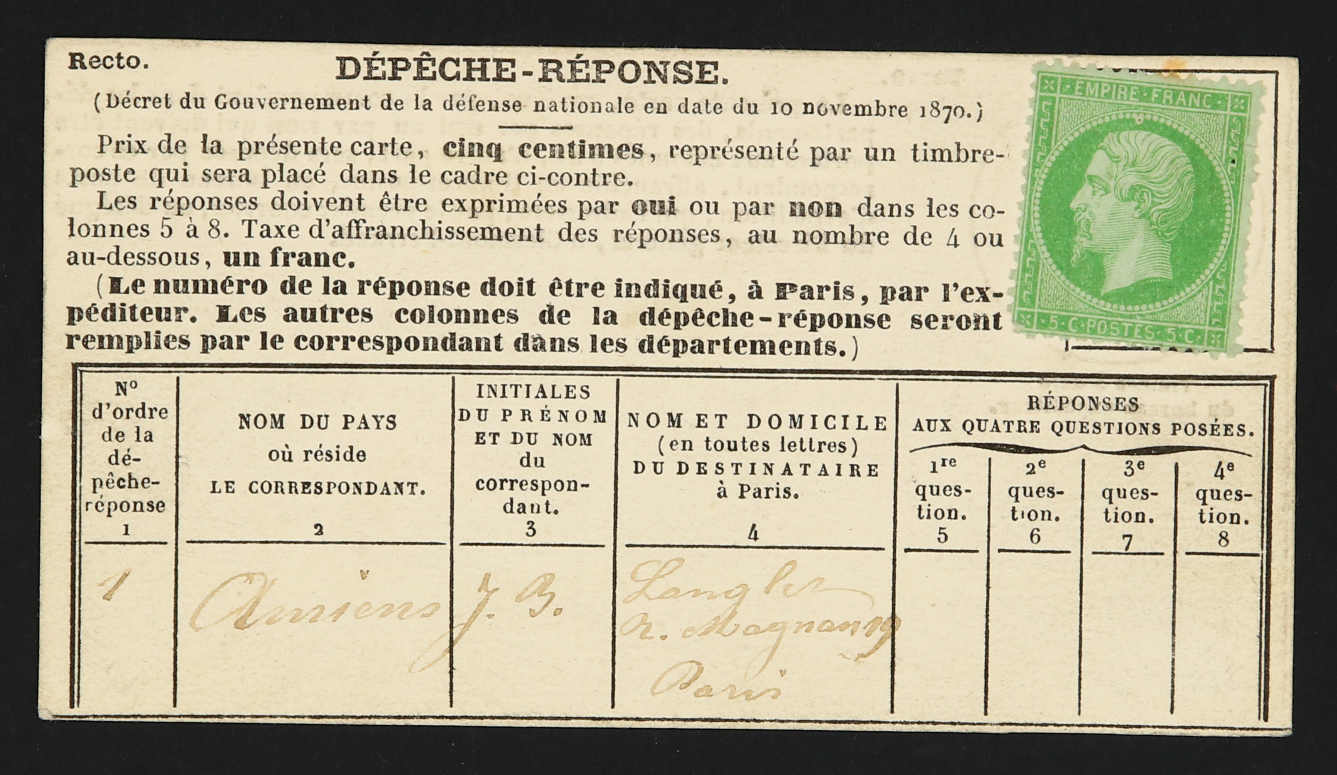 Recto.
DÉPÊCHE-RÉPONSE.
(Décret du Gouvernement de la défense nationale en date du 10 novembre 1870.)
Prix de la présente carte, cinq centimes, représenté par un timbre-
poste qui sera placé dans le cadre ci-contre.
Les réponses doivent être exprimées par oui ou par non dans les co-
lonnes 5 à 8. Taxe d'affranchissement des réponses, au nombre de 4 ou
au-dessous, un franc.
(Le numéro de la réponse doit être indiqué, à Paris, par l'ex-
péditeur. Les autres colonnes de la dépêche-réponse seront
remplies par le correspondant dans les départements.)
EMPIRE FRANC
5 C POSTES 5 C
N°
d'ordre
de la
dé-
pêche-
réponse
1
NOM DU PAYS
où réside
LE CORRESPONDANT.
2
INITIALES
DU PRÉNOM
ET DU NOM
du
correspon-
dant.
3
NOM ET DOMICILE
(en toutes lettres)
DU DESTINATAIRE
à Paris.
4
RÉPONSES
AUX QUATRE QUESTIONS POSÉES.
1re
ques-
tion.
5
2e
ques-
tion.
6
3e
ques-
tion.
7
4e
ques-
tion.
8
1
Amiens
J. B.
Langlet
r. Magnan 19
Paris